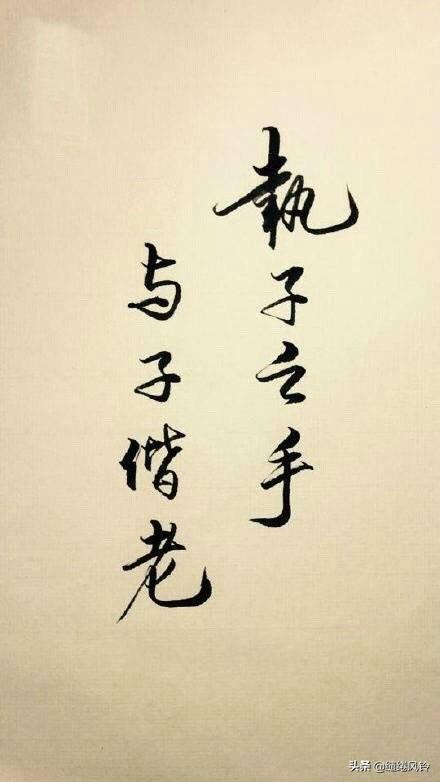 執子之手
与子偕老
头条 @缅绻风铃